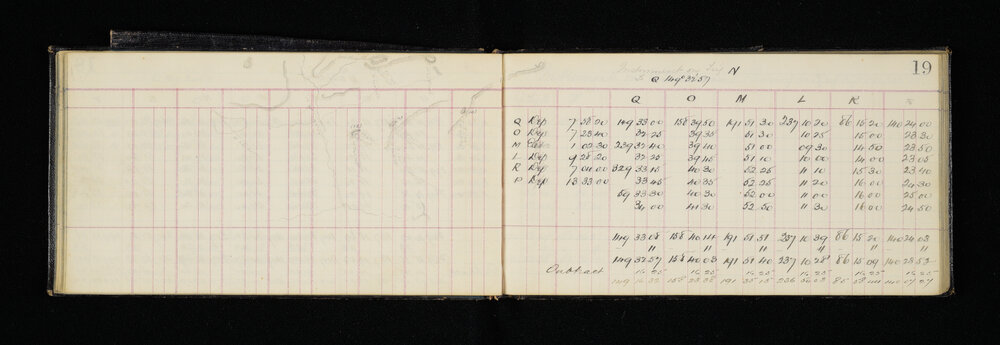 19
Instrument on N
Q 149 32 57
Q O M L R
Q Dep 7 28 20 149 33 00 158 39 50 191 51 30 237 10 20 86 15 20 140 24 00
O Dep 7 23 40 32 25 39 35 51 30 10 25 15 00 23 30
M 1 02 30 239 32 40 39 40 51 00 09 30 14 50 23 50
L Dep 9 28 20 32 25 39 45 51 10 10 00 14 00 23 05
R Dep 7 04 00 329 33 15 40 30 52 25 11 10 15 30 23 40
P Dep 13 33 00 33 45 40 35 52 25 11 20 16 00 24 30
59 33 30 40 30 52 00 11 00 16 00 25 00
34 00 41 30 52 50 11 30 16 00 24 50
149 33 08 158 40 14 191 51 51 237 10 39 86 15 20 140 24 03
" " " " "
149 32 57 158 40 03 191 51 40 237 10 28 86 15 09 140 23 52
Subtract 16 25 16 25 16 25 16 25 16 25 16 25
149 16 32 158 23 38 191 35 15 236 54 03 85 58 44 140 07 27